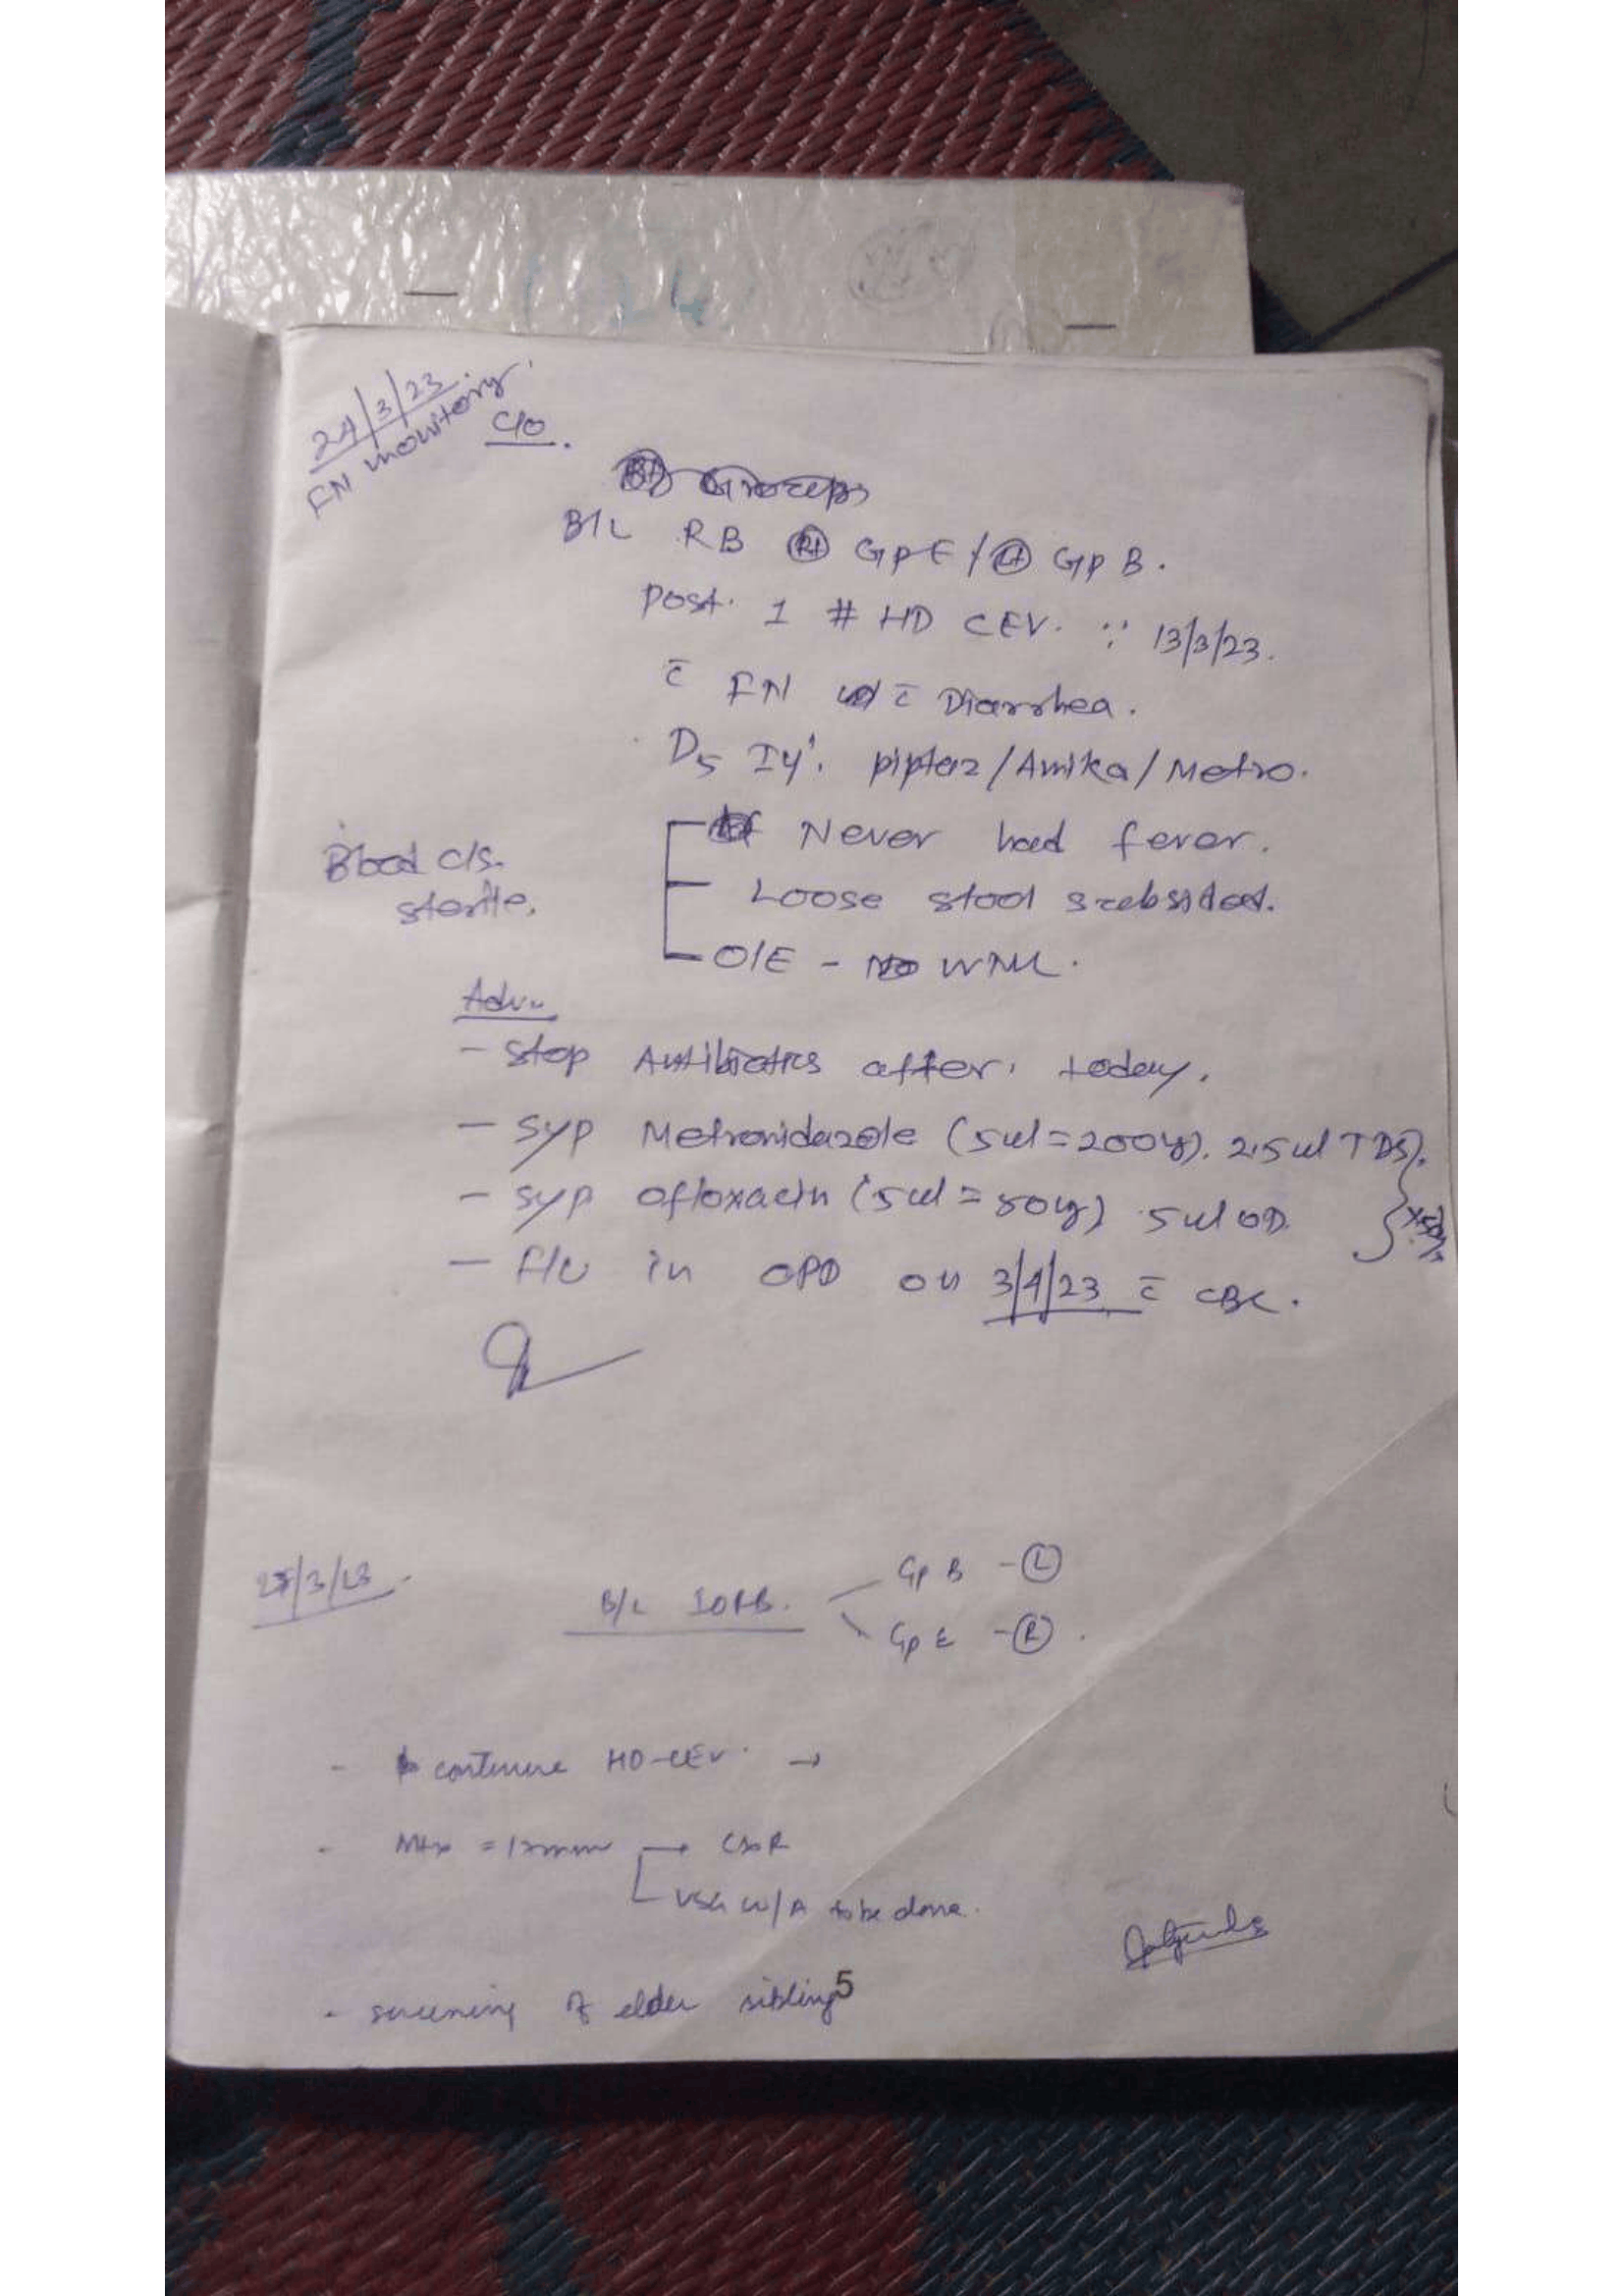 24/3/23.
FN monitoring.
C/o.
B/L RB Rt GpE / Lt GpB.
Post. 1 # HD CEV. ∵ 13/3/23.
c̄ FN c̄ Diarrhea.
D5 piptaz/Amika/Metro.
Never had fever.
Blood c/s.
Loose stool subsided.
sterile.
O/E - WNL.
Adv.
- Stop Antibiotics after today.
- Syp Metronidazole (5ml = 200mg). 2.5ml TDS.
- Syp Ofloxacin (5ml = 50mg) 5ml OD.
- F/U in OPD on 3/4/23 c̄ CBC.
/3/23.
B/L IORB.
Gp B - L
Gp E - R.
- continue HD-CEV. →
- = 12mm →
USG W/A to be done.
- screening of elder sibling
5